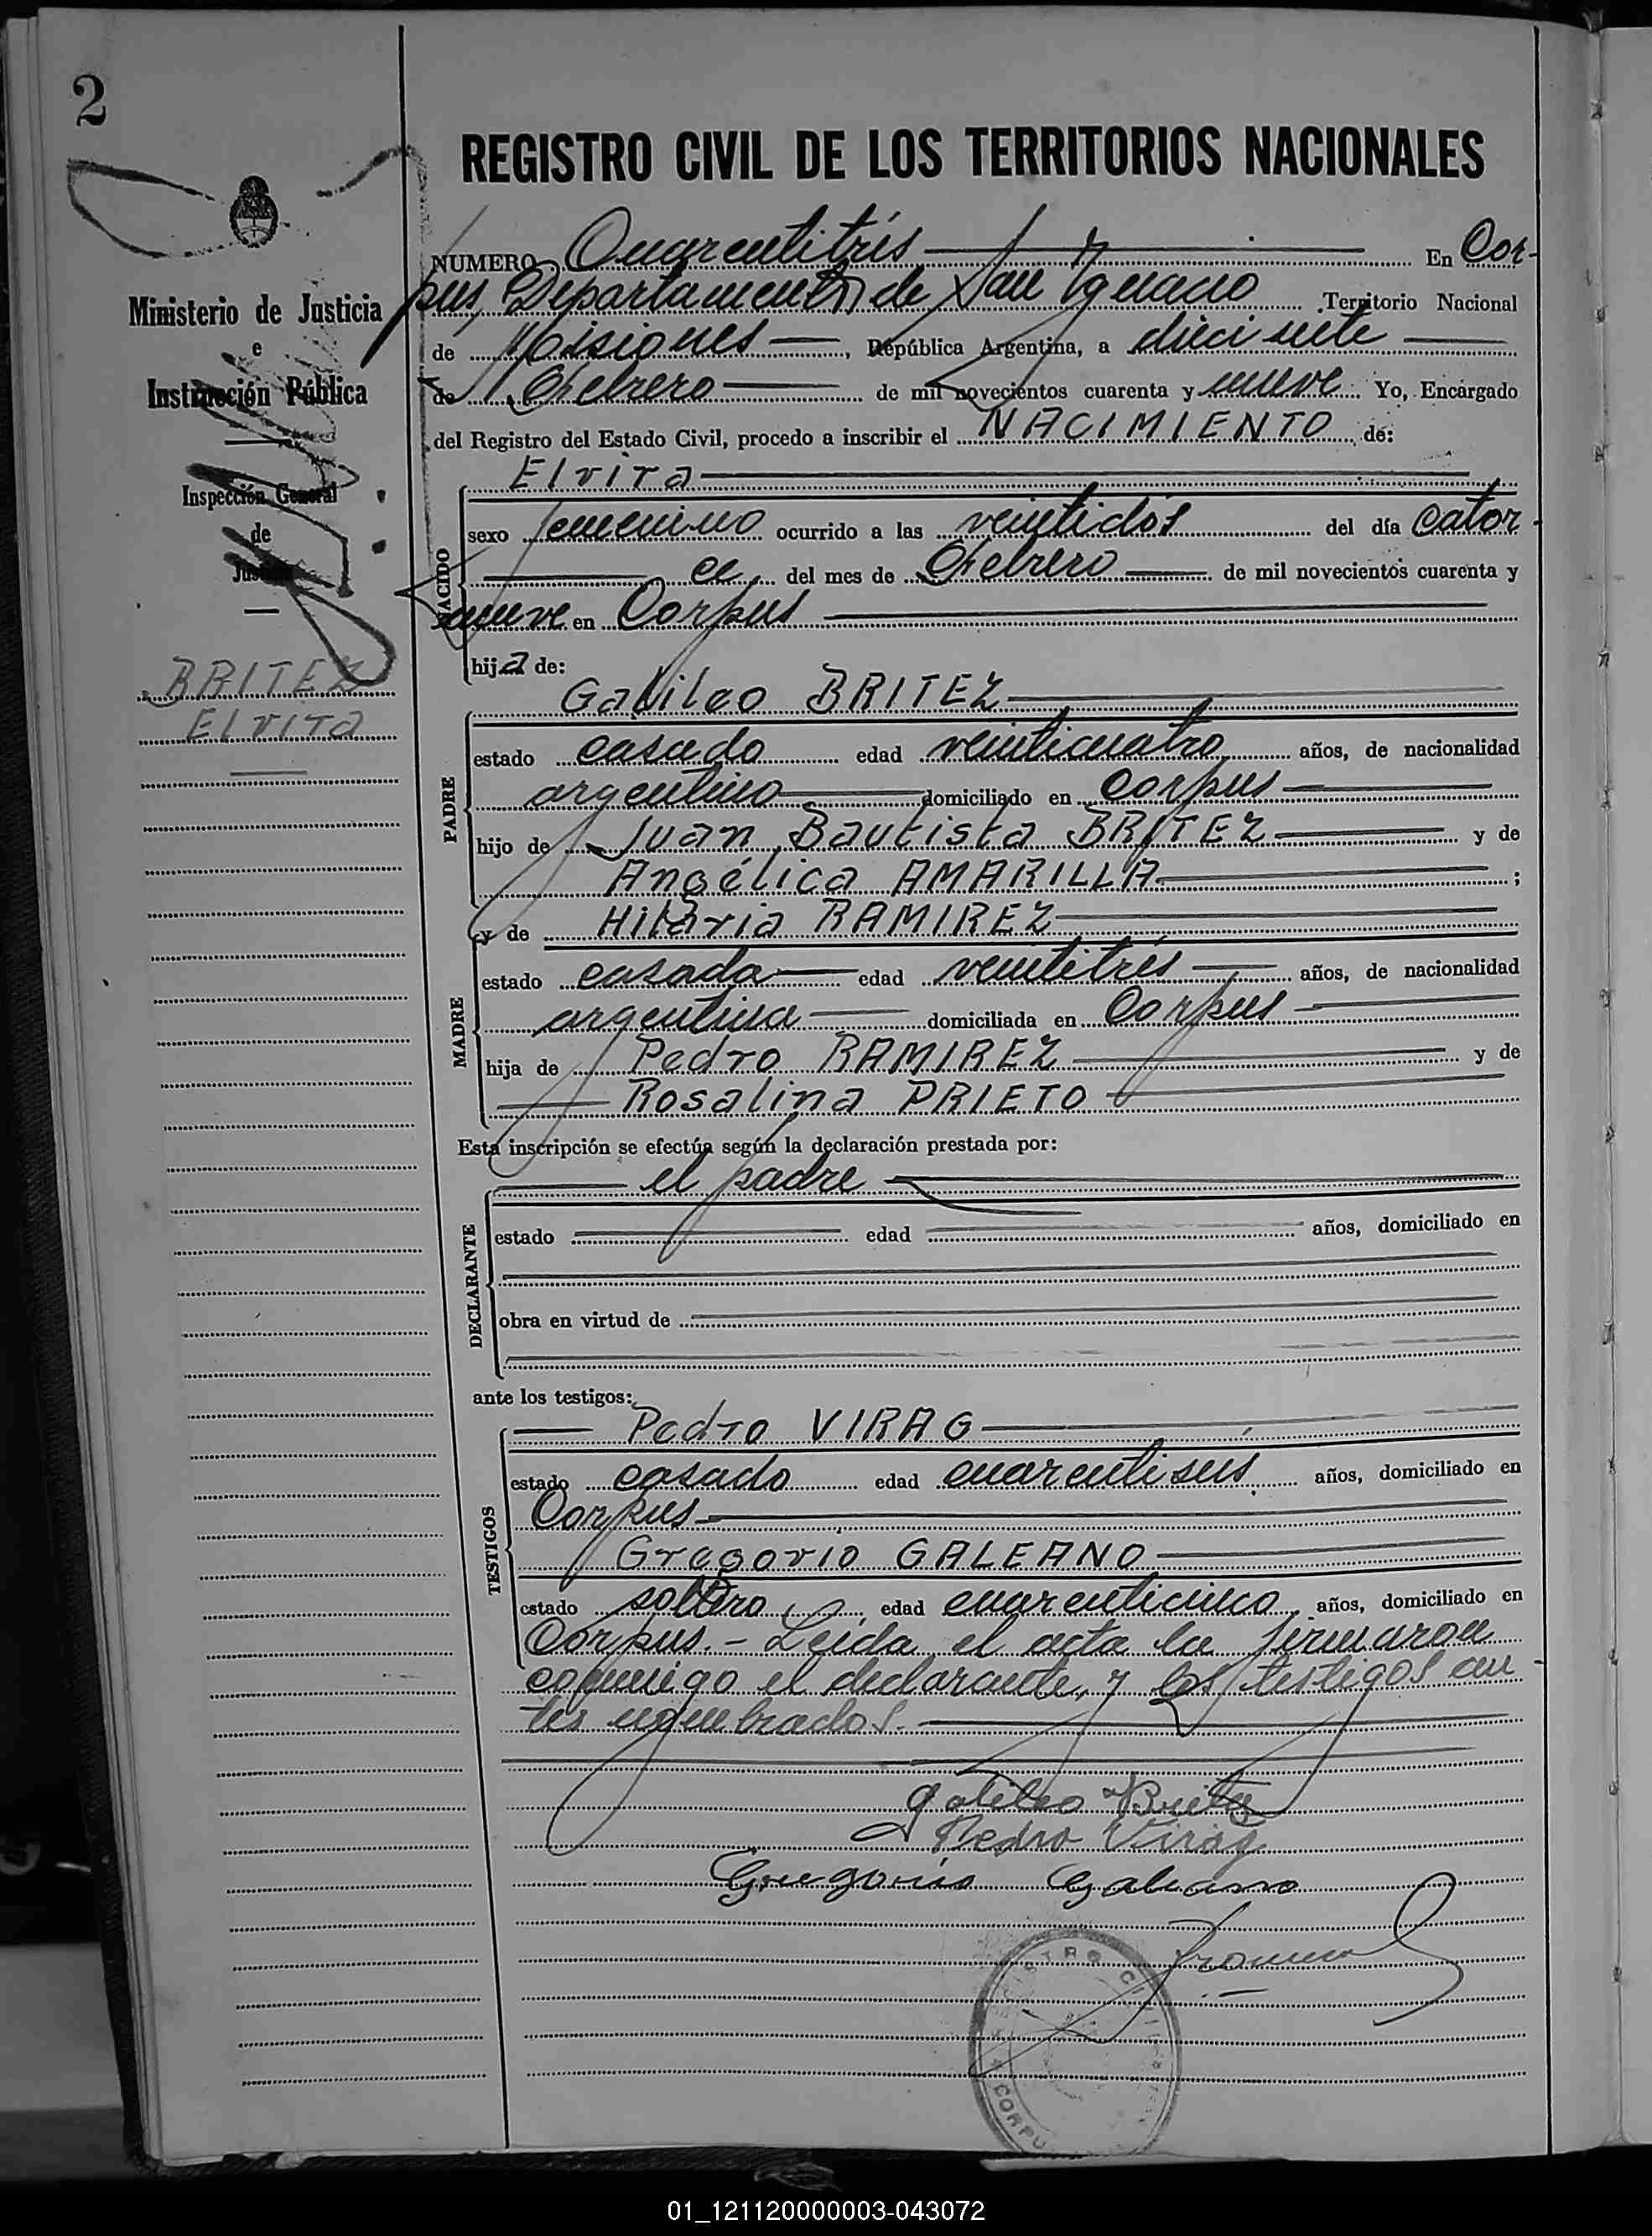 2
REGISTRO CIVIL DE LOS TERRITORIOS NACIONALES
Ministerio de Justicia
e
Instrucción Pública
Inspección General
de
Justicia
BRITEZ
Elvira
NUMERO Cuarentitrés En Cor-
pus, Departamento de San Ignacio Territorio Nacional
de Misiones, República Argentina, a diecisiete
de Febrero de mil novecientos cuarenta y nueve Yo, Encargado
del Registro del Estado Civil, procedo a inscribir el NACIMIENTO de:
NACIDO
Elvira
sexo femenino ocurrido a las veintidós del día cator-
ce, del mes de Febrero de mil novecientos cuarenta y
nueve en Corpus
hija de:
PADRE
Galileo BRITEZ
estado casado edad veinticuatro años, de nacionalidad
argentino domiciliado en Corpus
hijo de Juan Bautista BRITEZ y de
Angélica AMARILLA ;
MADRE
y de Hilaria RAMIREZ
estado casada edad veintitrés años, de nacionalidad
argentina domiciliada en Corpus
hija de Pedro RAMIREZ y de
Rosalina PRIETO
Esta inscripción se efectúa según la declaración prestada por:
DECLARANTE
el padre
estado edad años, domiciliado en
obra en virtud de
ante los testigos:
TESTIGOS
Pedro VIRAG
estado casado edad cuarentiseis años, domiciliado en
Corpus
Gregorio GALEANO
estado soltero edad cuarenticinco, años, domiciliado en
Corpus. - Leída el acta la firmaron
conmigo el declarante, y los testigos an-
tes nombrados.
Galileo Britez
Pedro Virág
Gregorio Galeano
REGISTRO CIVIL
CORPU
01_121120000003-043072